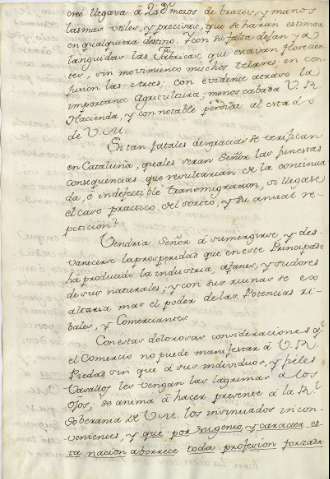 cres llegava á 25 D. menos de brazos, y manos
las mas utiles, y precisas, que se harian estimar
en qualquiera destino. Y con su falta desan y a
languidas las Fabricas, que estavan florecien
tes, sin movimiento muchos telares, en con
fusion las artes; con evidente atraso la
importante Agricultura; menoscabada V. R.
Hacienda, y con notable perdida al estado
de V. M.
Si tan fatales desgracias se verifican
en Cataluña, quales seran Señor las funestas
consequencias que resultarian de la continua
da, é indefectible transmigracion, si llegase
el caso practico del sorteo, y su annual re
peticion?
Vendria Señor á sumergirse, y des
vanecerse la prosperidad que en este Principado
ha producido la industria, afanes, y sudores
de sus naturales; y con sus ruinas se exa
ltaria mas el poder de las Potencias ri
bales, y Comerciantes.
Con estas dolorosas consideraciones q.
el Comercio no puede manifestar á V. R.
Piedad sin que á sus individuos, y fieles
Vasallos les vengan las lagrimas á los
ojos, se anima á hacer presente á la R.l
Soberania de V. M. los insinuados incon-
venientes, y que por su genio, y caracter es
ta nacion aborrece toda profesion forzada